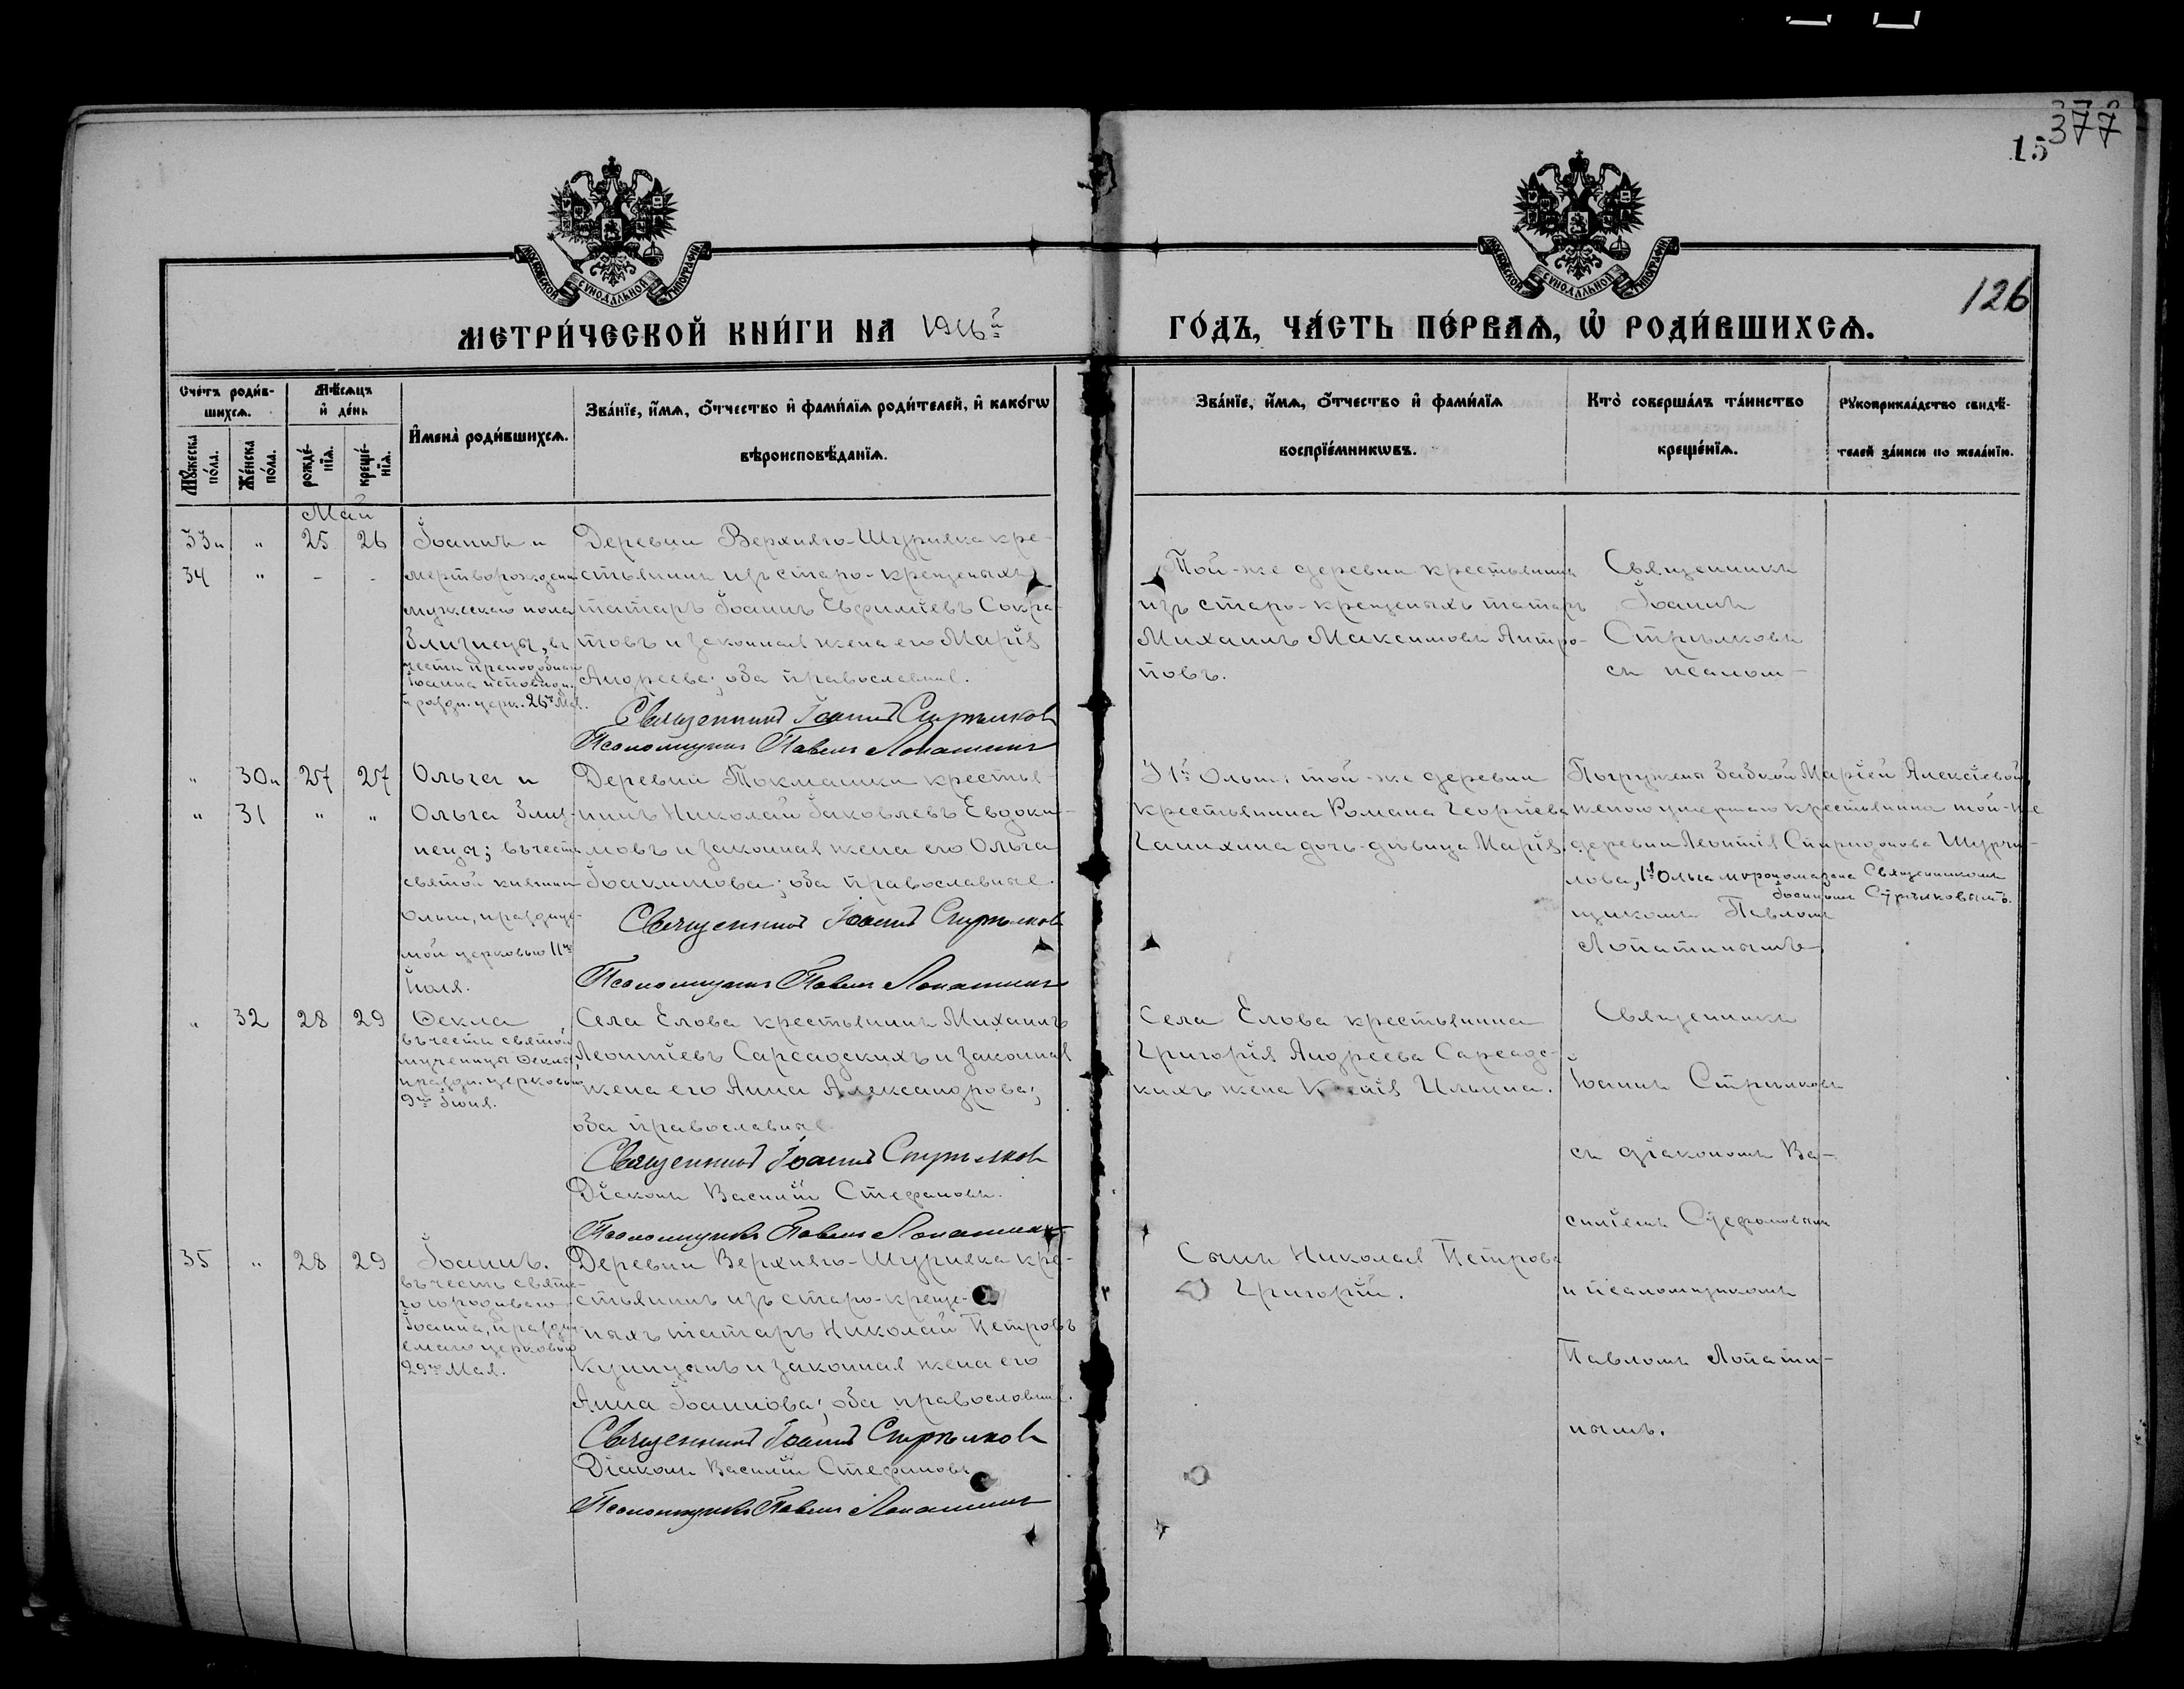 377
15
126
МОСКОВСКОЙ СѴНОДАЛЬНОЙ ТИПОГРАФІИ
МОСКОВСКОЙ СѴНОДАЛЬНОЙ ТИПОГРАФІИ
МЕТРИ́ЧЕСКОЙ КНИ́ГИ НА 1916й
ГО́ДЪ, ЧА́СТЬ ПЕ́РВАѦ, Ѿ РОДИ́ВШИХСѦ.
Сче́тъ роди́в-
шихсѧ.
Мѣ́сѧцъ
и҆ де́нь
Мꙋ́жеска по́ла.
Же́нска по́ла.
рожде́-нїѧ.
креще́-нїѧ.
И҆мена̀ роди́вшихсѧ.
Зва́нїе, и҆́мѧ, о҆́тчество и҆ фами́лїѧ роди́телей, и҆ како́гѡ
вѣроисповѣ́данїѧ.
Зва́нїе, и҆́мѧ, о҆́тчество и҆ фами́лїѧ
воспрїе́мникѡвъ.
Кто̀ соверша́лъ та́инство
креще́нїѧ.
Рꙋкоприкла́дство свидѣ́-
телей за́писи по жела́нїю.
Май
33и " 25 26
34 " - -
Іоаннъ и
мертворожден
мужескаго пола
близнецы, въ
честь преподобнаго
Іоанна исповѣдн.
праздн. церк. 26го Мая.
Деревни Верхняго-Шурняка кре-
стьянинъ изъ старо-крещеныхъ
татаръ Іоаннъ Евфиміевъ Сокра-
товъ и законная жена его Марія
Андреева; оба православные.
Священникъ Іоаннъ Стрѣлковъ
Псаломщикъ Павелъ Лопатинъ
Той-же деревни крестьянинъ
изъ старо-крещеныхъ татаръ
Михаилъ Максимовъ Антро-
повъ.
Священникъ
Іоаннъ
Стрѣлковъ
съ псалом-
" 30и 27 27
" 31 " "
Ольга и
Ольга близ-
нецы; въ честь
святой княгини
Ольги, празднуе-
мой церковью 11го
Іюля.
Деревни Токмашки крестья-
нинъ Николай Іаковлевъ Евдоки-
мовъ и законная жена его Ольга
Іоакимова; оба православные.
Священникъ Іоаннъ Стрѣлковъ
Псаломщикъ Павелъ Лопатинъ
У 1й Ольги: той-же деревни
крестьянина Романа Георгіева
Ганихина дочь-дѣвица Марія.
Погружены бабкой Маріей Алексіевой,
женою умершаго крестьянина той-же
деревни Леонтія Спиридонова Шурги-
лова, 1я Ольга мѵропомазана Священникомъ
Іоанномъ Стрѣлковымъ.
щикомъ Павломъ
Лопатинымъ
" 32 28 29
Ѳекла
въ честь святой
мученицы Ѳеклы,
праздн. церковью
9го Іюня.
Села Елова крестьянинъ Михаилъ
Леонтіевъ Сарсадскихъ и законная
жена его Анна Александрова;
оба православные
Священникъ Іоаннъ Стрѣлковъ
Діаконъ Василій Стефановъ.
Псаломщикъ Павелъ Лопатинъ
Села Елова крестьянина
Григорія Андреева Сарсадс-
кихъ жена Ильина.
Священникъ
Іоаннъ Стрѣлковъ
съ діакономъ Ва-
силіемъ Стефановымъ
и псаломщикомъ
Павломъ Лопати-
нымъ.
35 " 28 29
Іоаннъ.
въ честь свята-
го юродиваго
Іоанна, праздну
емаго церковью
29го Мая.
Деревни Верхняго-Шурняка кре-
стьянинъ изъ старо-креще-
ныхъ татаръ Николай Петровъ
и законная жена его
Анна Іоаннова; оба православные.
Священникъ Іоаннъ Стрѣлковъ
Діаконъ Василій Стефановъ
Псаломщикъ Павелъ Лопатинъ
Сынъ Николая Петрова
Григорій.